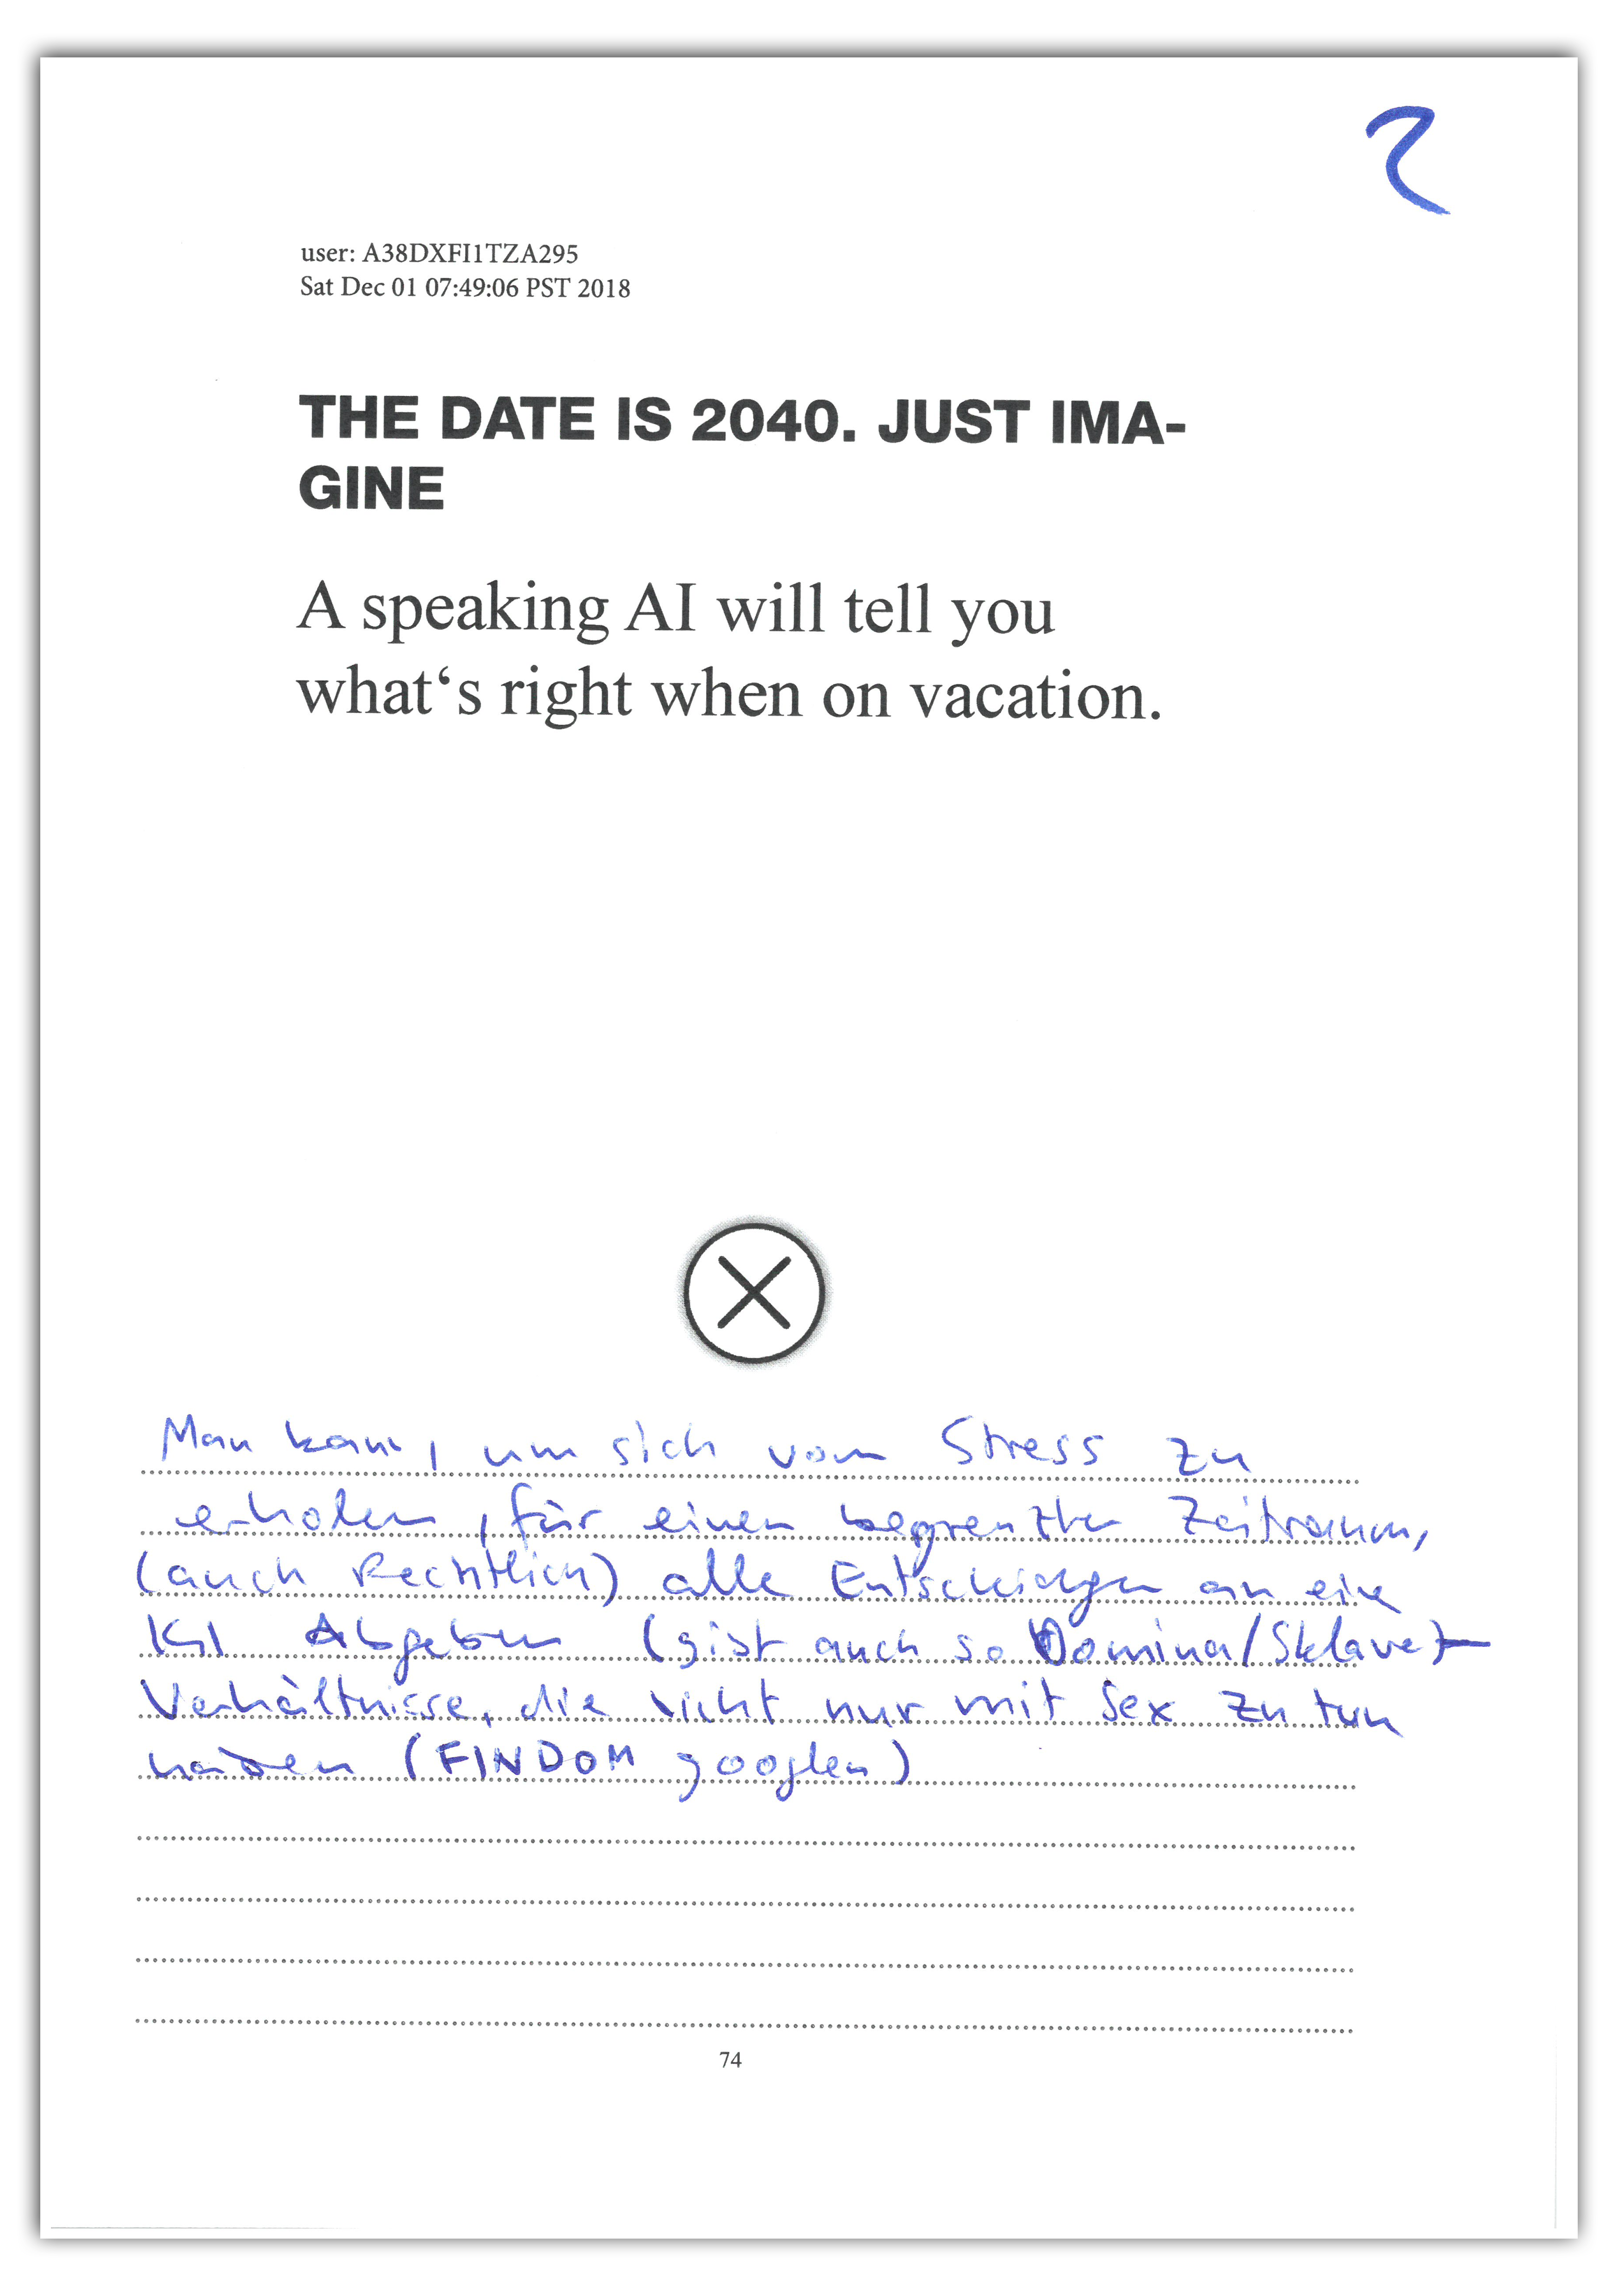 2
user: A38DXFI1TZA295
Sat Dec 01 07:49:06 PST 2018
THE DATE IS 2040. JUST IMA-
GINE
A speaking AI will tell you
what‘s right when on vacation.
Man kann, um sich vom Stress zu
erholen, für einen begrenzten Zeitraum,
(auch Rechtlich) alle Entscheidgen an eine
KI Abgeben (gibt auch so Domina/Sklave)-
Verhältnisse, die nicht nur mit Sex zu tun
haben (FINDOM googlen)
74